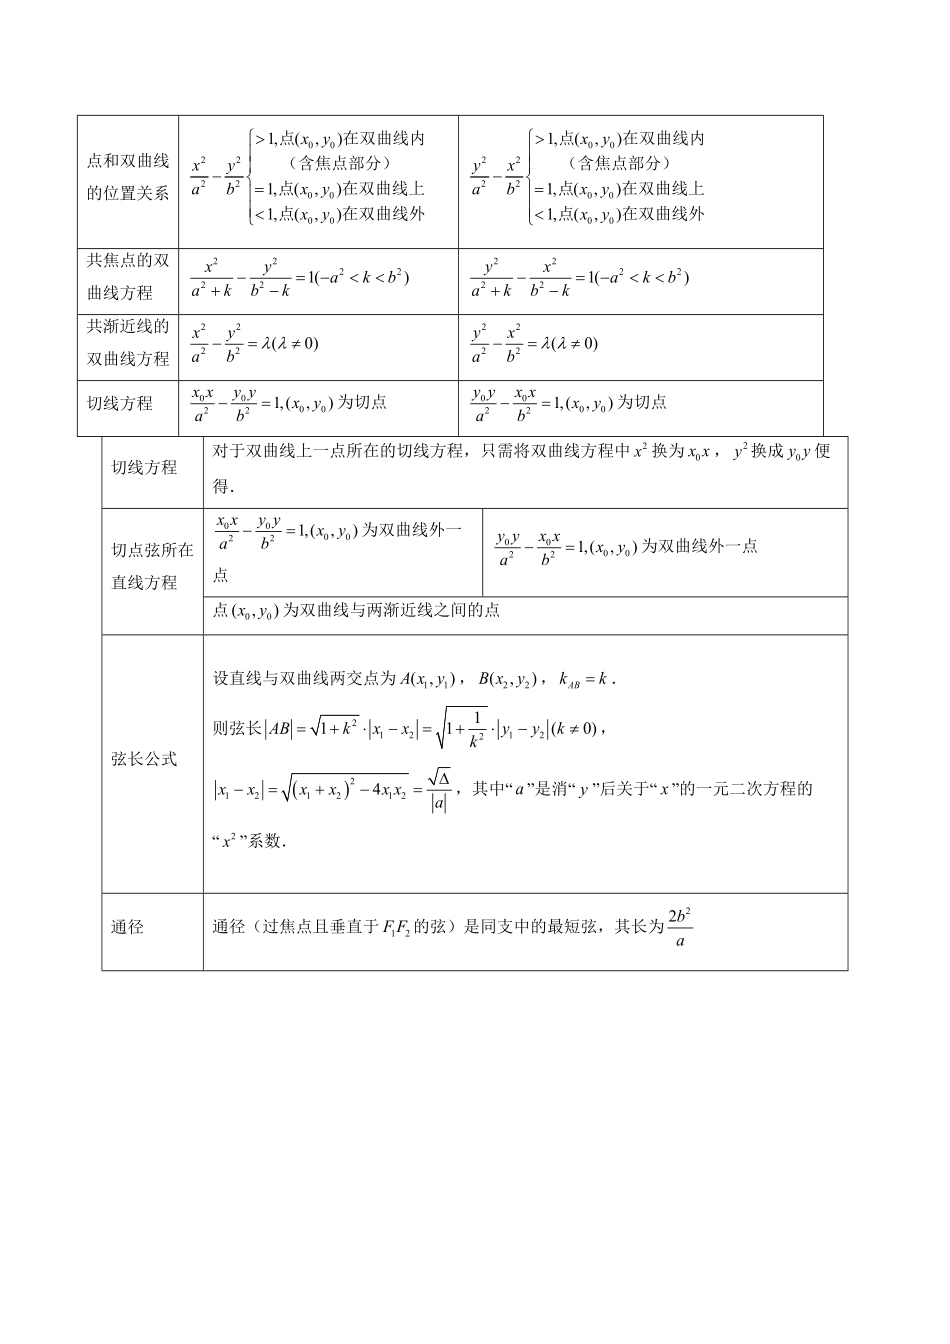 点和双曲线的位置关系
x²/a² − y²/b² { >1,点(x₀, y₀)在双曲线内
（含焦点部分）
=1,点(x₀, y₀)在双曲线上
<1,点(x₀, y₀)在双曲线外
y²/a² − x²/b² { >1,点(x₀, y₀)在双曲线内
（含焦点部分）
=1,点(x₀, y₀)在双曲线上
<1,点(x₀, y₀)在双曲线外
共焦点的双
曲线方程
x²/(a²+k) − y²/(b²−k) =1(−a² < k < b²)
y²/(a²+k) − x²/(b²−k) =1(−a² < k < b²)
共渐近线的
双曲线方程
x²/a² − y²/b² = λ(λ ≠ 0)
y²/a² − x²/b² = λ(λ ≠ 0)
切线方程
x₀x/a² − y₀y/b² =1,(x₀, y₀) 为切点
y₀y/a² − x₀x/b² =1,(x₀, y₀) 为切点
切线方程
对于双曲线上一点所在的切线方程，只需将双曲线方程中 x² 换为 x₀x ， y² 换成 y₀y 便
得．
切点弦所在
直线方程
x₀x/a² − y₀y/b² =1,(x₀, y₀) 为双曲线外一
点
y₀y/a² − x₀x/b² =1,(x₀, y₀) 为双曲线外一点
点 (x₀, y₀) 为双曲线与两渐近线之间的点
弦长公式
设直线与双曲线两交点为 A(x₁, y₁) ， B(x₂, y₂) ， k_AB = k ．
则弦长 |AB| = √(1+k²) · |x₁ − x₂| = √(1+1/k²) · |y₁ − y₂| (k ≠ 0) ，
|x₁ − x₂| = √((x₁ + x₂)² − 4x₁x₂) = √Δ/|a| ，其中“ a ”是消“ y ”后关于“ x ”的一元二次方程的
“ x² ”系数．
通径
通径（过焦点且垂直于 F₁F₂ 的弦）是同支中的最短弦，其长为 2b²/a